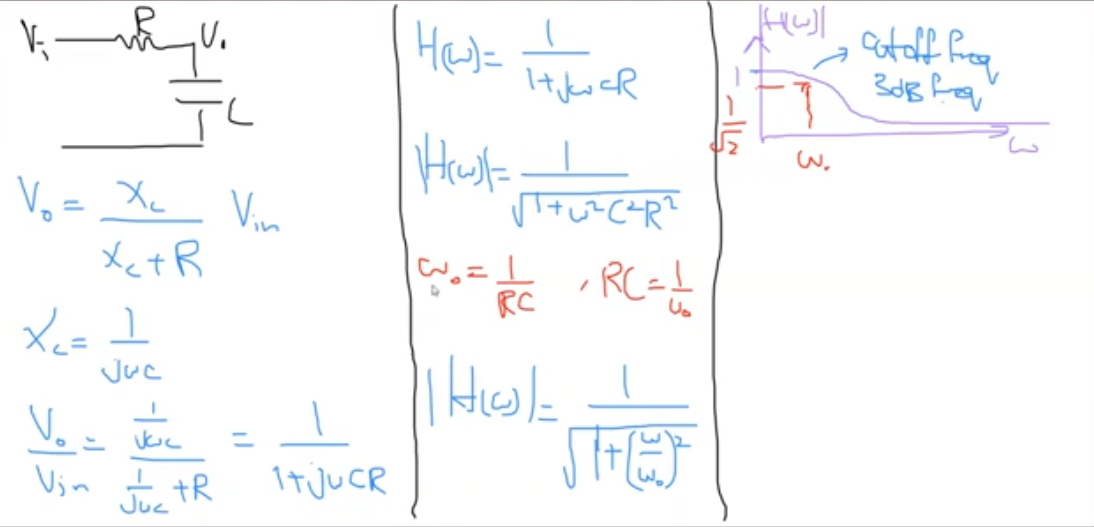 R
Vi
V.
C
V₀ = Xc / (Xc + R) Vin
Xc = 1 / jωC
V₀ / Vin = (1/jωC) / (1/jωC + R) = 1 / (1 + jωCR)
H(ω) = 1 / (1 + jωCR)
|H(ω)| = 1 / √(1 + ω²C²R²)
ω₀ = 1 / RC , RC = 1 / ω₀
|H(ω)| = 1 / √(1 + (ω/ω₀)²)
|H(ω)|
Cutoff freq
3dB freq
1
1/√2
ω₀
ω